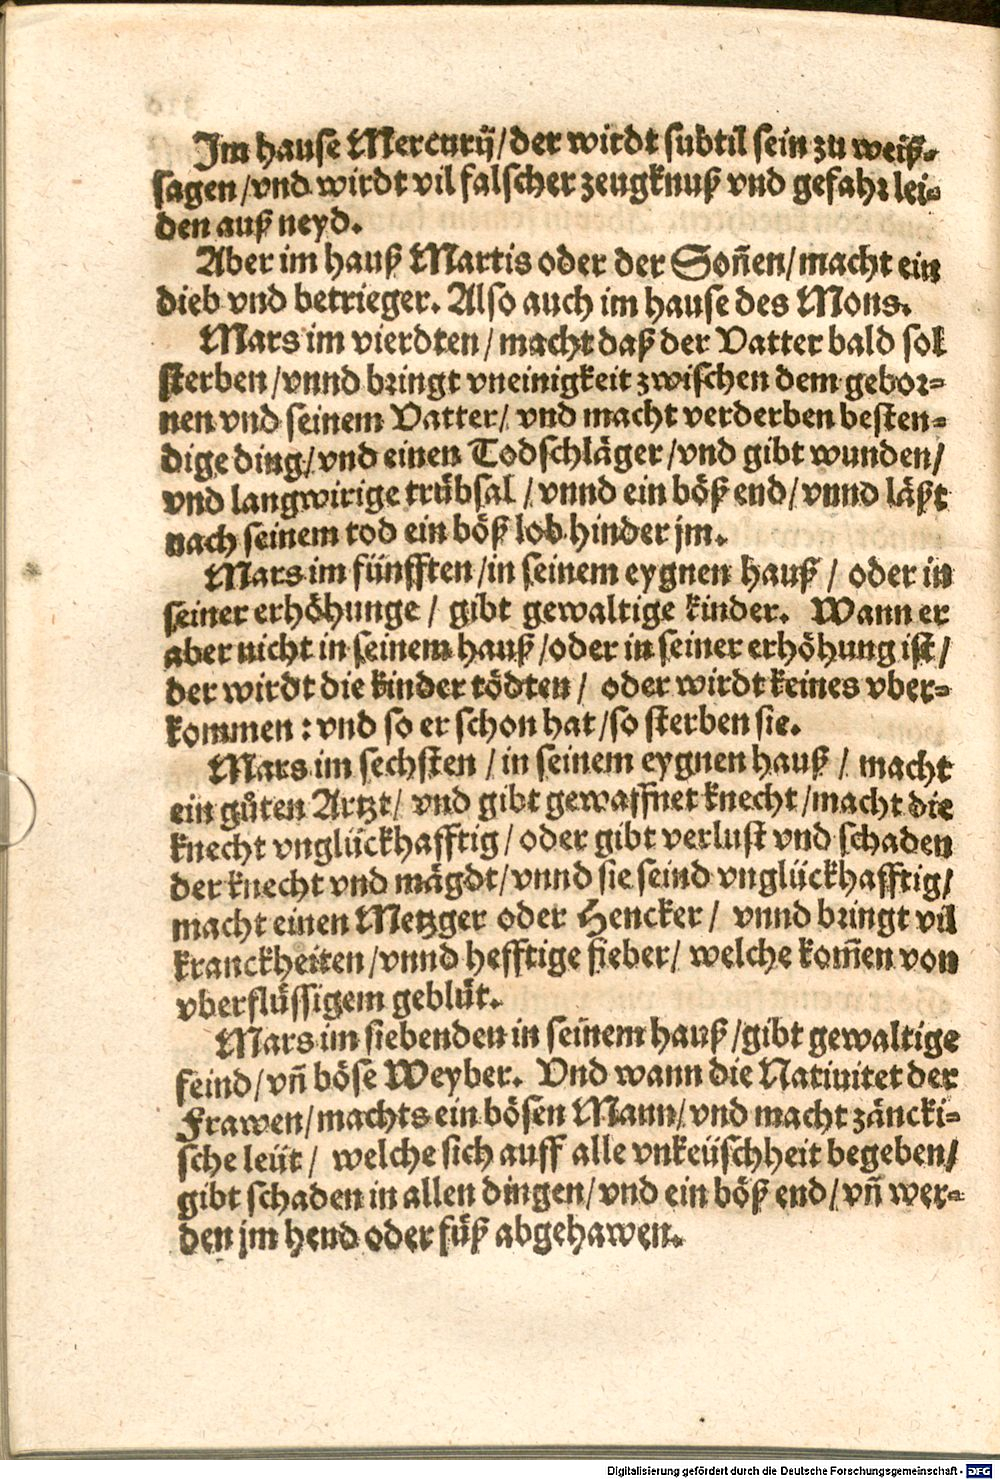 Im hause Mercurij/der wirdt subtil sein zu weiß-
sagen/vnd wirdt vil falscher zeugknuß vnd gefahr lei-
den auß neyd.
Aber im hauß Martis oder der Soñen/macht ein
dieb vnd betrieger. Also auch im hause des Mons.
Mars im vierdten/macht daß der Vatter bald sol
sterben/vnnd bringt vneinigkeit zwischen dem gebor-
nen vnd seinem Vatter/vnd macht verderben besten-
dige ding/vnd einen Todschläger/vnd gibt wunden/
vnd langwirige trübsal/vnnd ein böß end/vnnd läßt
nach seinem tod ein böß lob hinder jm.
Mars im fünfften/in seinem eygnen hauß/ oder in
seiner erhöhunge/ gibt gewaltige kinder. Wann er
aber nicht in seinem hauß/oder in seiner erhöhung ist/
der wirdt die kinder tödten/ oder wirdt keines vber-
kommen: vnd so er schon hat/so sterben sie.
Mars im sechsten/in seinem eygnen hauß/ macht
ein gůten Artzt/ vnd gibt gewaffnet knecht/macht die
knecht vnglückhafftig/ oder gibt verlust vnd schaden
der knecht vnd mägdt/vnnd sie seind vnglückhafftig/
macht einen Metzger oder Hencker/ vnnd bringt vil
kranckheiten/vnnd hefftige fieber/ welche kom̃en von
vberflüssigem geblüt.
Mars im siebenden in seinem hauß/gibt gewaltige
feind/vñ böse Weyber. Vnd wann die Natiuitet der
Frawen/machts ein bösen Mann/vnd macht zäncki-
sche leüt/ welche sich auff alle vnkeüschheit begeben/
gibt schaden in allen dingen/vnd ein böß end/vñ wer-
den jm hend oder füß abgehawen.
Digitalisierung gefördert durch die Deutsche Forschungsgemeinschaft - DFG